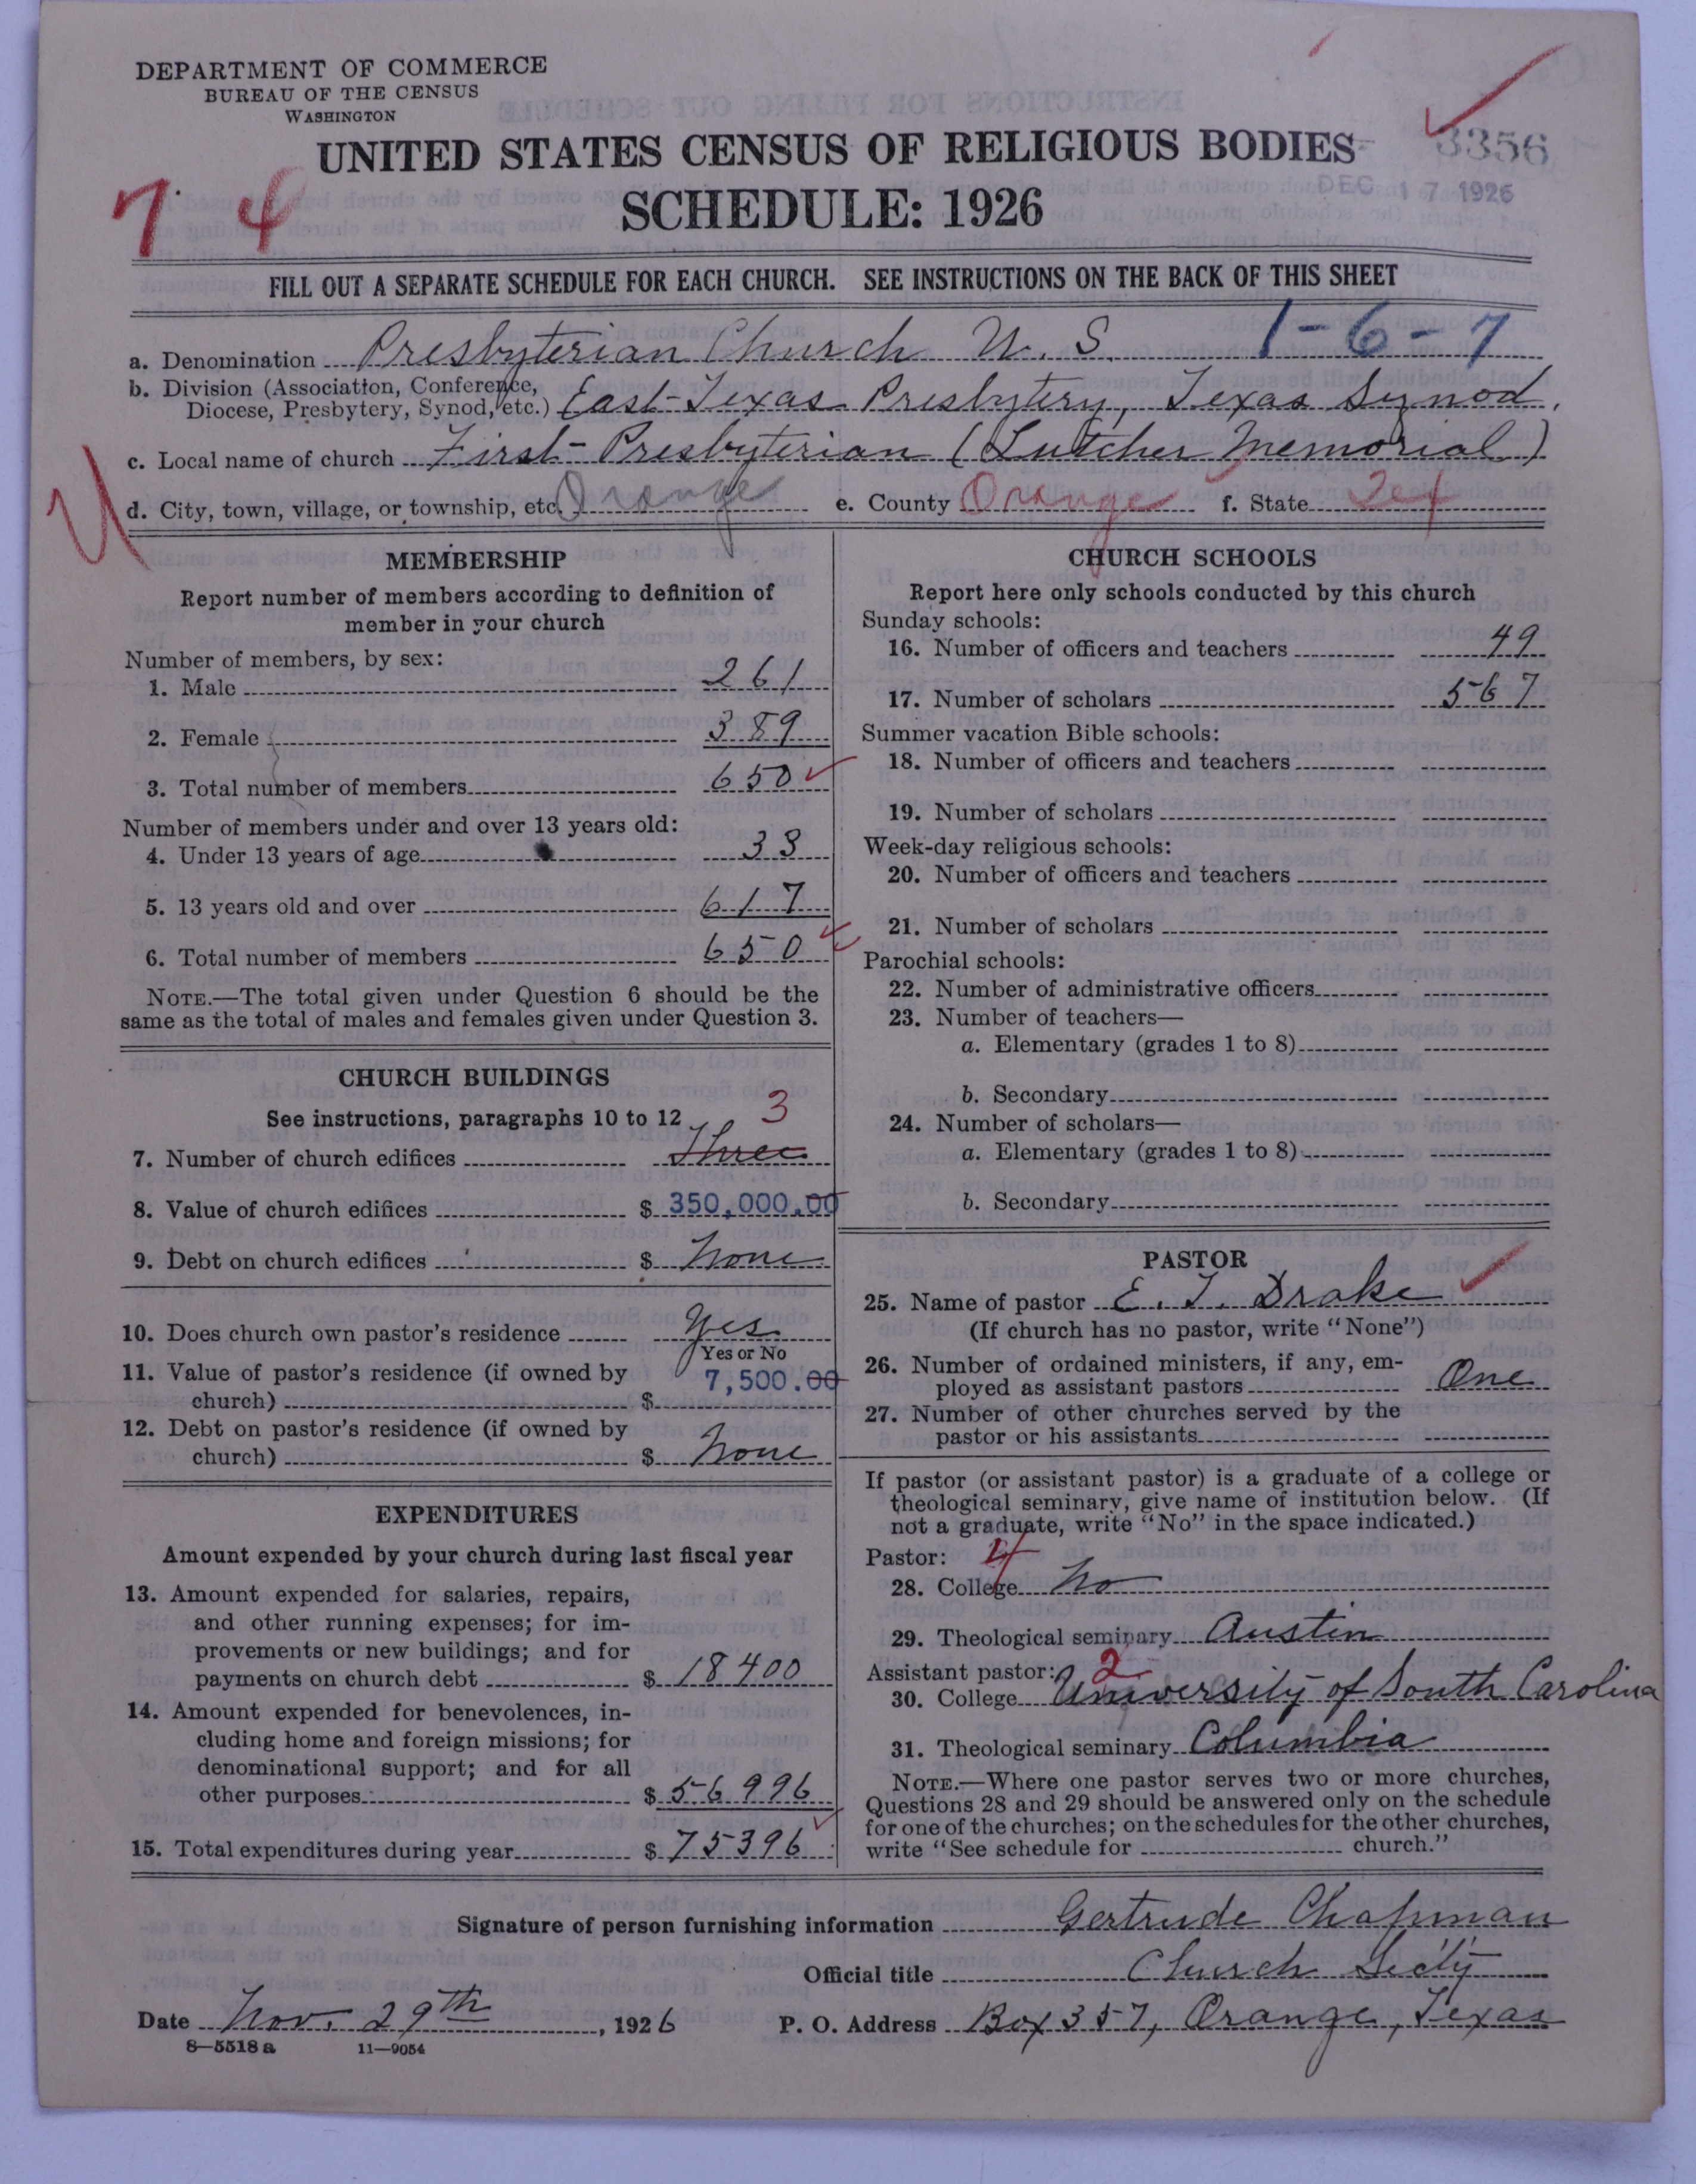 DEPARTMENT OF COMMERCE
BUREAU OF THE CENSUS
WASHINGTON
UNITED STATES CENSUS OF RELIGIOUS BODIES
3356
SCHEDULE: 1926
DEC 17 1926
7 4
FILL OUT A SEPARATE SCHEDULE FOR EACH CHURCH. SEE INSTRUCTIONS ON THE BACK OF THIS SHEET
1-6-7
a. Denomination Presbyterian Church U. S.
b. Division (Association, Conference, Diocese, Presbytery, Synod, etc.) East-Texas Presbytery, Texas Synod.
c. Local name of church First-Presbyterian (Lutcher Memorial)
d. City, town, village, or township, etc. Orange e. County Orange f. State Tex
MEMBERSHIP
Report number of members according to definition of
member in your church
Number of members, by sex:
1. Male 261
2. Female 389
3. Total number of members 650
Number of members under and over 13 years old:
4. Under 13 years of age 33
5. 13 years old and over 617
6. Total number of members 650
NOTE.—The total given under Question 6 should be the
same as the total of males and females given under Question 3.
CHURCH BUILDINGS
See instructions, paragraphs 10 to 12
3
7. Number of church edifices Three
8. Value of church edifices $ 350,000.00
9. Debt on church edifices $ None
10. Does church own pastor's residence Yes
Yes or No
11. Value of pastor's residence (if owned by
church) $ 7,500.00
12. Debt on pastor's residence (if owned by
church) $ None
EXPENDITURES
Amount expended by your church during last fiscal year
13. Amount expended for salaries, repairs,
and other running expenses; for im-
provements or new buildings; and for
payments on church debt $ 18400
14. Amount expended for benevolences, in-
cluding home and foreign missions; for
denominational support; and for all
other purposes $ 56996
15. Total expenditures during year $ 75396
CHURCH SCHOOLS
Report here only schools conducted by this church
Sunday schools:
16. Number of officers and teachers 49
17. Number of scholars 567
Summer vacation Bible schools:
18. Number of officers and teachers
19. Number of scholars
Week-day religious schools:
20. Number of officers and teachers
21. Number of scholars
Parochial schools:
22. Number of administrative officers
23. Number of teachers—
a. Elementary (grades 1 to 8)
b. Secondary
24. Number of scholars—
a. Elementary (grades 1 to 8)
b. Secondary
PASTOR
25. Name of pastor E. T. Drake
(If church has no pastor, write "None")
26. Number of ordained ministers, if any, em-
ployed as assistant pastors One
27. Number of other churches served by the
pastor or his assistants
If pastor (or assistant pastor) is a graduate of a college or
theological seminary, give name of institution below. (If
not a graduate, write "No" in the space indicated.)
Pastor: 4
28. College No
29. Theological seminary Austin
Assistant pastor: 2
30. College University of South Carolina
31. Theological seminary Columbia
NOTE.—Where one pastor serves two or more churches,
Questions 28 and 29 should be answered only on the schedule
for one of the churches; on the schedules for the other churches,
write "See schedule for church."
Signature of person furnishing information Gertrude Chapman
Official title Church Sec'ty
Date Nov. 29th, 1926 P. O. Address Box 357, Orange, Texas
8—5518 a 11—9054